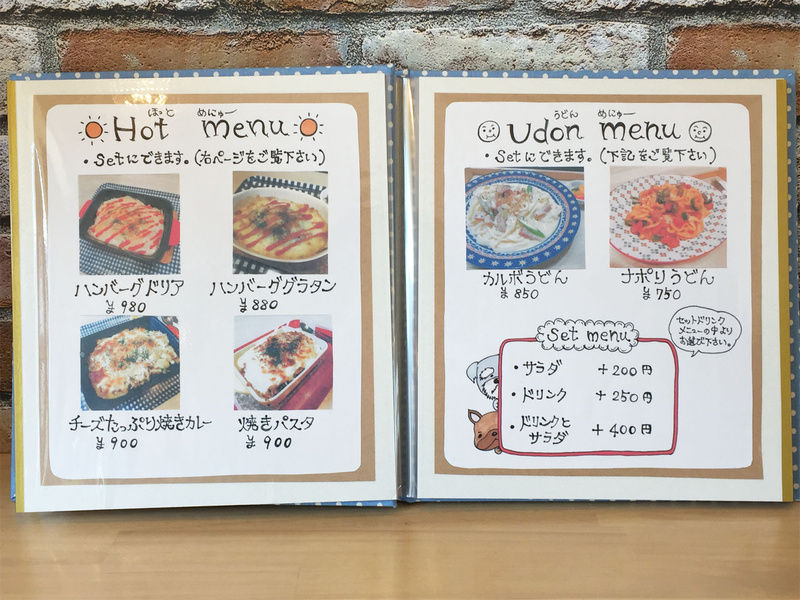 ほっと めにゅー
Hot menu
・Setにできます。(右ページをご覧下さい)
ハンバーグドリア
¥980
ハンバーググラタン
¥880
チーズたっぷり焼きカレー
¥900
焼きパスタ
¥900
うどん めにゅー
Udon menu
・Setにできます。(下記をご覧下さい)
カルボうどん
¥850
ナポリうどん
¥750
セットドリンク
メニューの中より
お選び下さい。
Set menu
・サラダ +200円
・ドリンク +250円
・ドリンクと
サラダ +400円